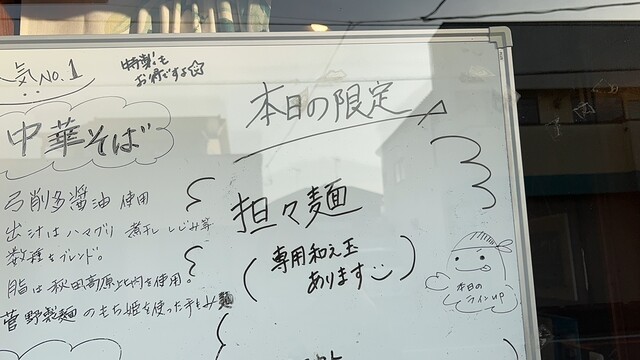 人気No.1
特製も
お得ですよ☆
中華そば
弓削多醤油 使用
出汁はハマグリ 煮干 しじみ等
数種をブレンド。
脂は秋田高原比内を使用。
菅野製麺のもち姫を使った手もみ麺
本日の限定
担々麺
(専用和え玉
あります)
本日の
ラインup